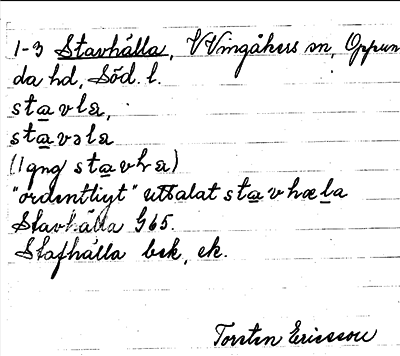 1-3 Stavhälla, V Vingåkers sn, Oppun
da hd, Söd. l.
stavla,
stavəla
(1 gng stavha)
"ordentligt" uttalat stavhæla
Stavhälla G65.
Stafhälla bsk, ek.
Torsten Ericsson